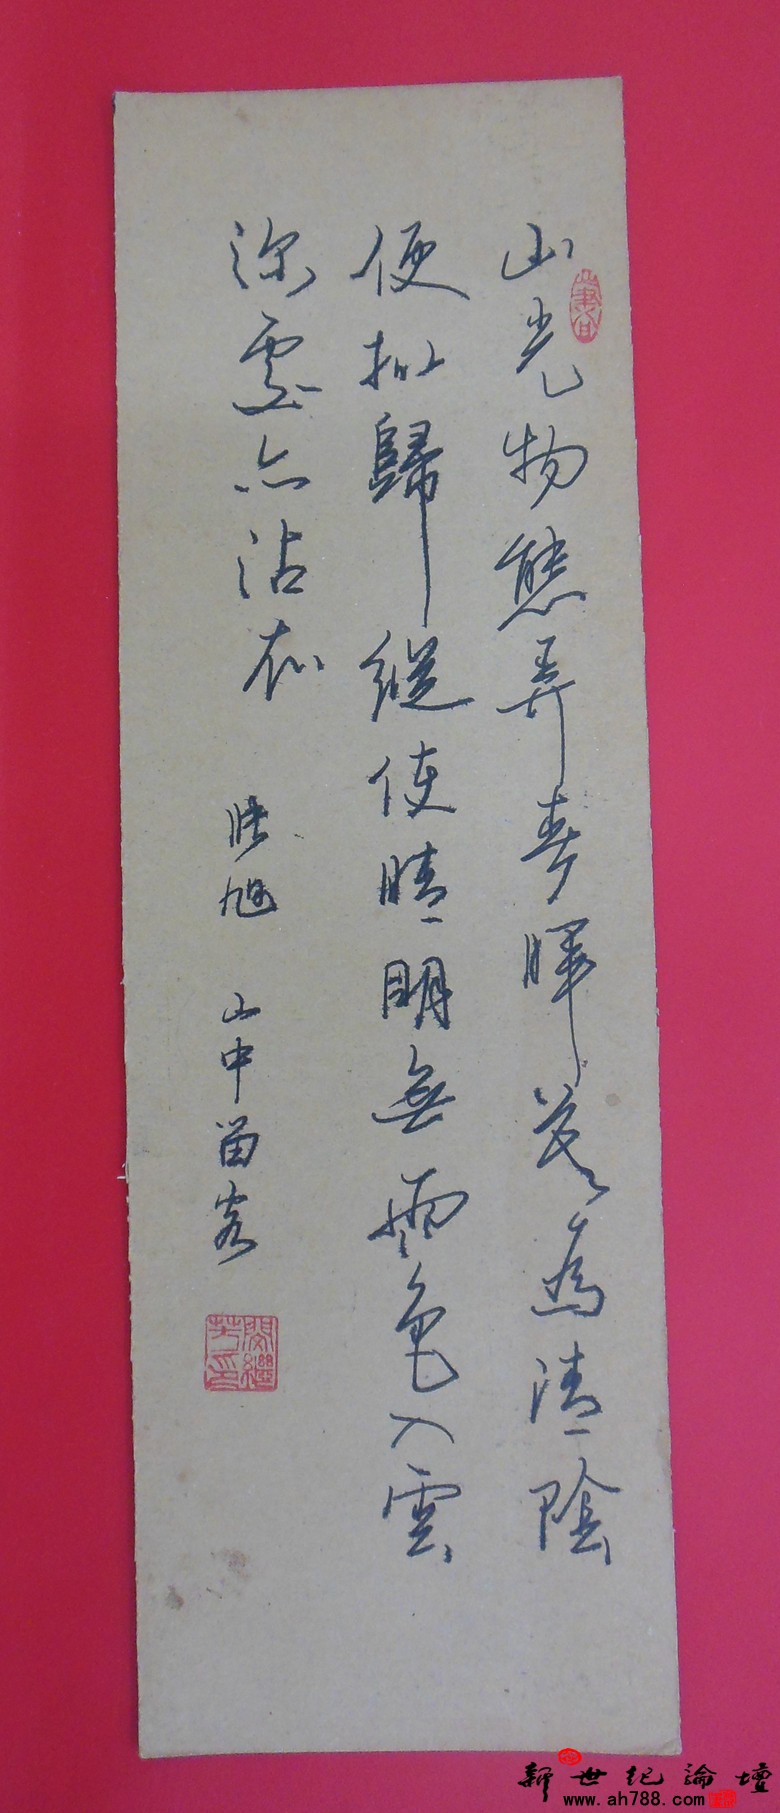 山光物態弄春暉莫為清陰
便拟歸縱使晴明無雨色入雲
深處亦沾衣
張旭 山中留客
新世纪論壇
www.ah788.com